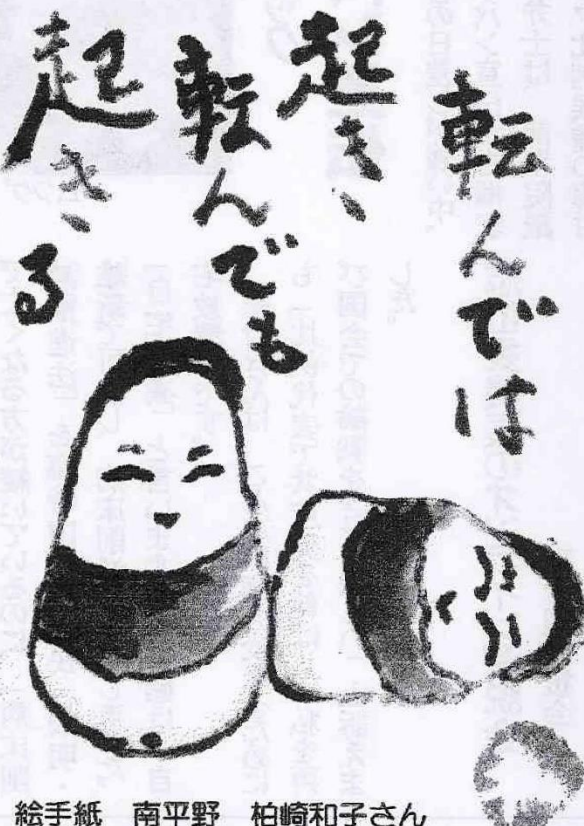 転んでは
起き
転んでも
起きる
絵手紙　南平野　柏崎和子さん